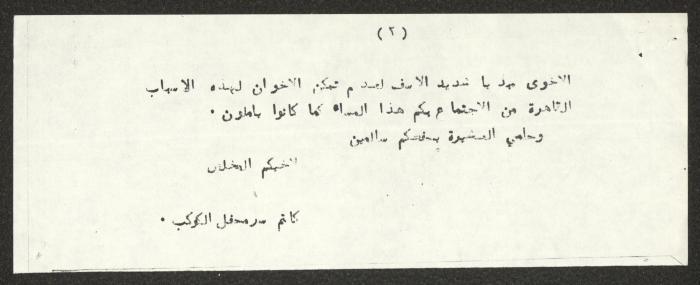 (٢)
الاخوى مع شديد الاسف لعدم تمكن الاخوان لهذه الاسباب
القاهرة من الاجتماع بكم هذا المساء كما كانوا ياملون .
وحامي العشيرة يحفظكم سالمين
اخيكم المخلص
كاتم سر محفل الكوكب .